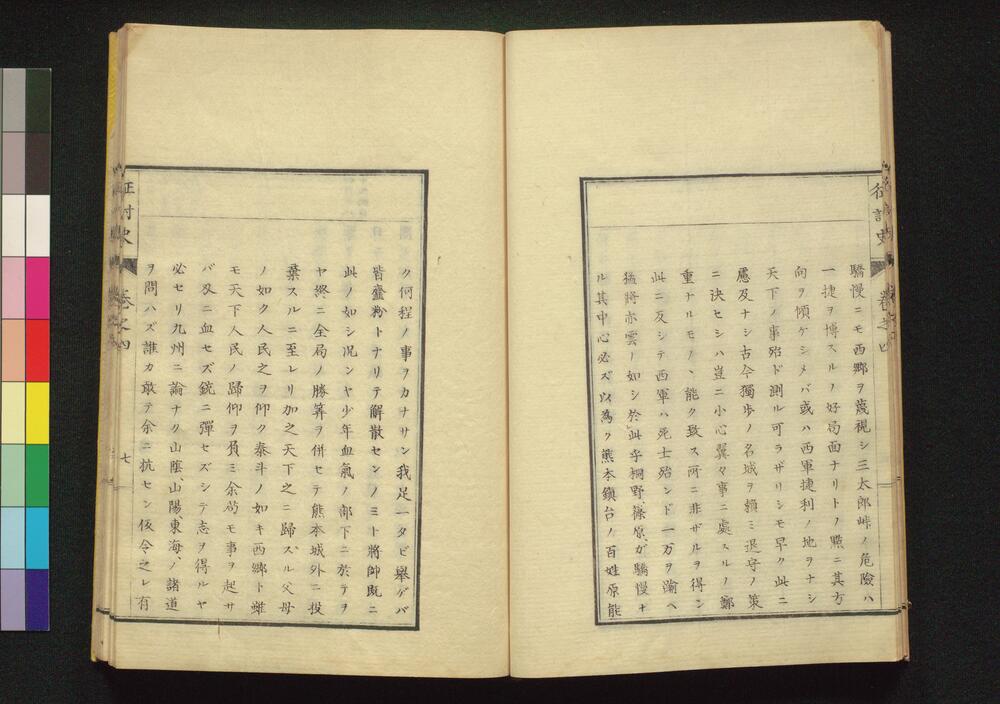 征討史
卷之四
驕慢ニモ西鄕ヲ蔑視シ三太郎峠ノ危險ハ
一捷ヲ博スルノ好局面ナリトノ㸃ニ其方
向ヲ傾ケシメバ或ハ西軍捷利ノ地ヲナシ
天下ノ事殆ド測ル可ラザリシモ早ク此ニ
慮及ナシ古今獨歩ノ名城ヲ頼ミ退守ノ策
ニ決セシハ豈ニ小心翼々事ニ處スルノ鄭
重ナルモノヽ能ク致ス所ニ非ザルヲ得ン
此ニ反シテ西軍ハ死士殆ンド一万ヲ踰ヘ
猛将亦雲ノ如シ於此乎桐野、篠原、ガ驕慢ナ
ル其中心必ズ以為ク熊本鎮台ノ百姓原能
ク何程ノ事ヲカナサン我足一タビ擧ゲバ
皆齏粉トナリテ解散センノミト將帥既ニ
此ノ如シ况ンヤ少年血氣ノ部下ニ於テヲ
ヤ終ニ全局ノ勝筭ヲ併セテ熊本城外ニ投
棄スルニ至レリ加之天下之ニ歸スル父母
ノ如ク人民之ヲ仰ク泰斗ノ如キ西鄕ト雖
モ天下人民ノ歸仰ヲ負ミ余苟モ事ヲ起サ
バ刄ニ血セズ銃ニ彈セズシテ志ヲ得ルヤ
必セリ九州ニ論ナク山陰、山陽、東海、ノ諸道
ヲ問ハズ誰カ敢テ余ニ抗セン仮令之レ有
征討史
卷之四
七